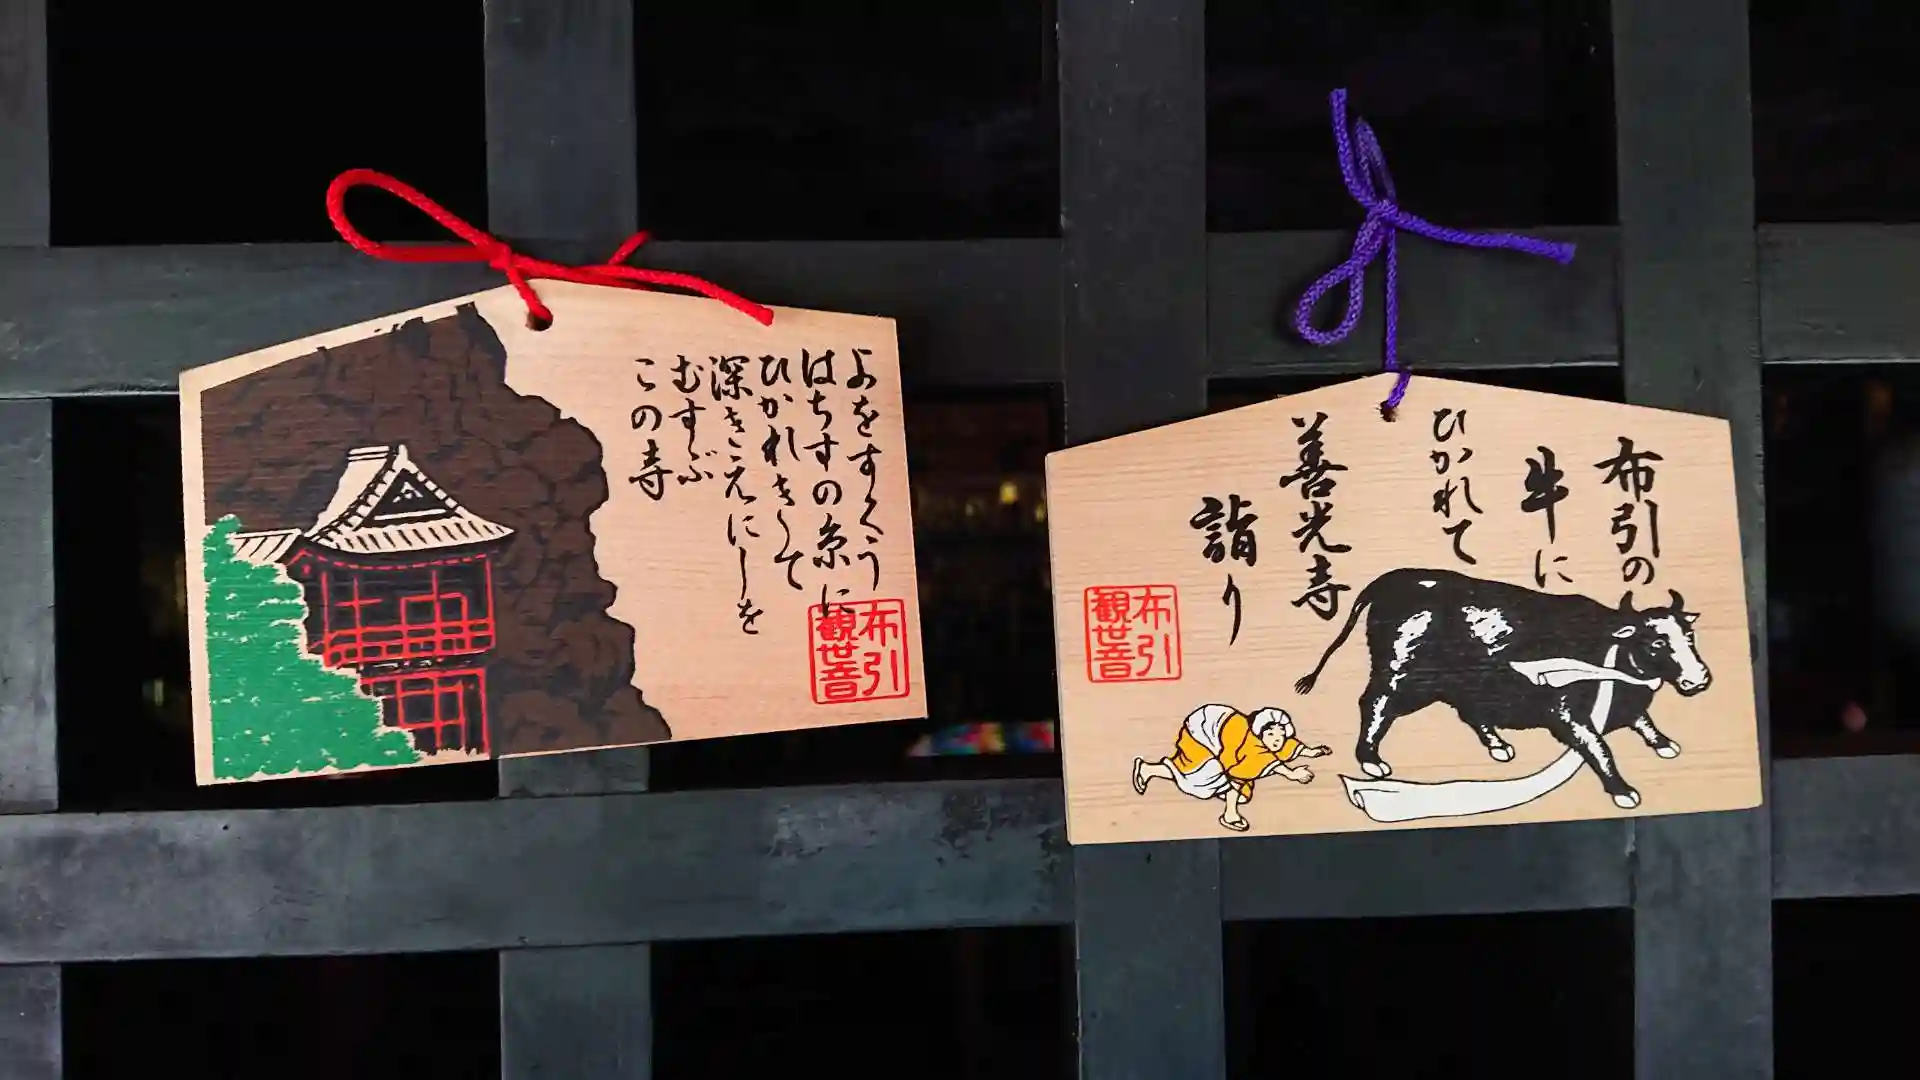 よをすくう
はちすの糸に
ひかれきて
深きえにしを
むすぶ
この寺
布引
観世音
布引の
牛に
ひかれて
善光寺
詣り
布引
観世音